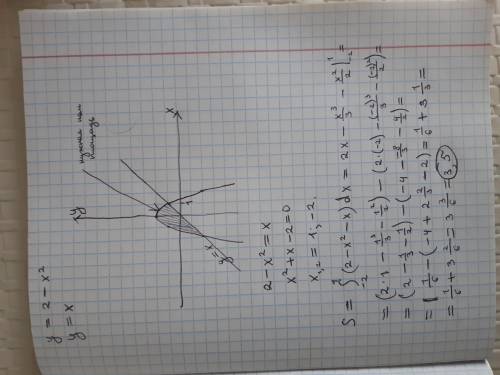 y = 2 - x²
y = x
y
нужная нам
площадь
x
1
y = x
2 - x² = x
x² + x - 2 = 0
x₁,₂ = 1; -2.
S = ∫₋₂¹ (2 - x² - x) dx = 2x - x³/3 - x²/2 |₋₂¹ =
= (2·1 - 1³/3 - 1²/2) - (2·(-2) - (-2)³/3 - (-2)²/2) =
= (2 - 1/3 - 1/2) - (-4 - 8/3 - 4/2) =
= 1 1/6 - (-4 + 2 2/3 - 2) = 1/6 + 3 1/3 =
= 1/6 + 3 2/6 = 3 3/6 = 3,5